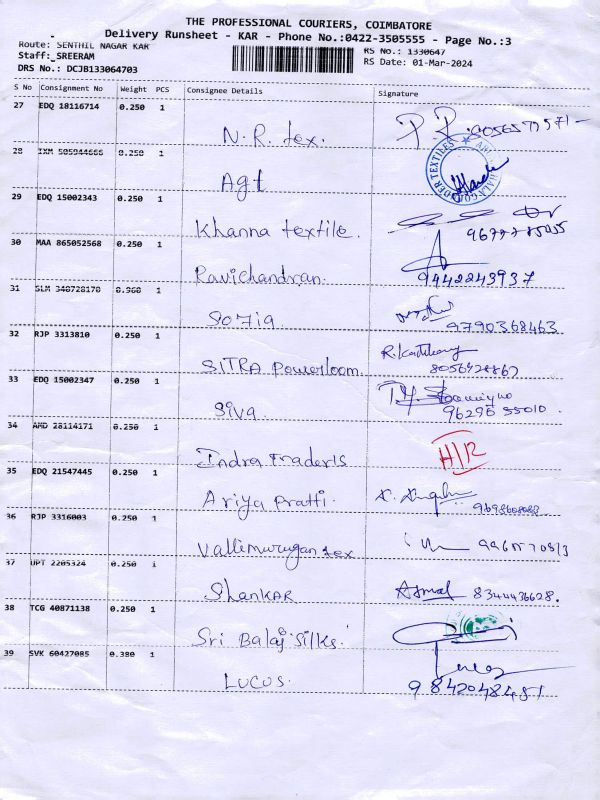 THE PROFESSIONAL COURIERS, COIMBATORE
Delivery Runsheet - KAR - Phone No.:0422-3505555 - Page No.:3
Route: SENTHIL NAGAR KAR
RS No.: 1330647
Staff: SREERAM
RS Date: 01-Mar-2024
DRS No.: DCJB133064703
S No Consignment No Weight PCS Consignee Details Signature
27 EDQ 18116714 0.250 1
N.R. tex.
28 IXM 505944666 0.250 1
Agt
29 EDQ 15002343 0.250 1
Khanna textile.
30 MAA 865052568 0.250 1
Ravichandran. 9442243937
31 SLM 348728178 0.960 1
Sofia. 9790368463
32 RJP 3313810 0.250 1
SITRA powerloom. 8056428867
33 EDQ 15002347 0.250 1
Siva 96296 55010.
34 AMD 28114171 0.250 1
Indra Traderls H/R
35 EDQ 21547445 0.250 1
Ariya pratti.
36 RJP 3316003 0.250 1
Vallimurugan tex
37 UPT 2205324 0.250 1
Shankar 8344436628.
38 TCG 40871138 0.250 1
Sri Balaj Silks.
39 SVK 60427085 0.380 1
Lucus. 9842048451